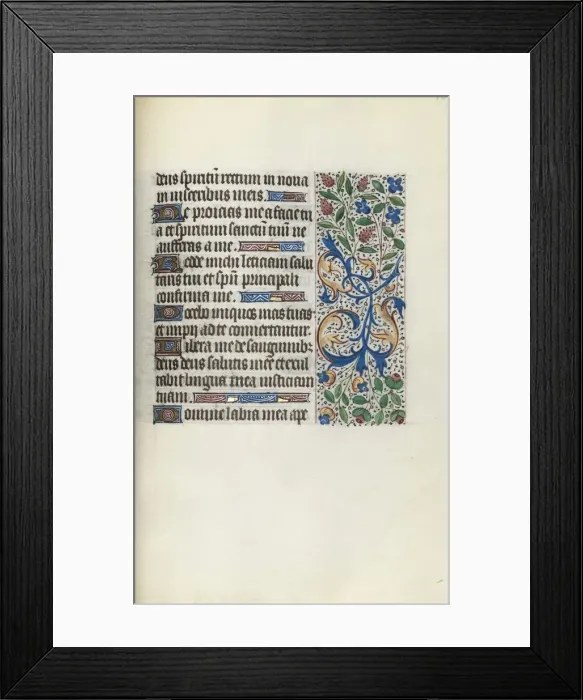 deus spiritū rectum in noua
in uisceribus meis.
Ne proicias me a facie tu
a et spiritum sanctū tuū ne
auffras a me.
Redde michi leticiam salu
taris tui et spū principali
confirma me.
Docebo iniquos uias tuas
et impij ad te conuertantur.
Libera me de sanguinibꝫ
deus deus salutis mee et exul
tabit lingua mea iusticiam
tuam.
Domine labia mea ape